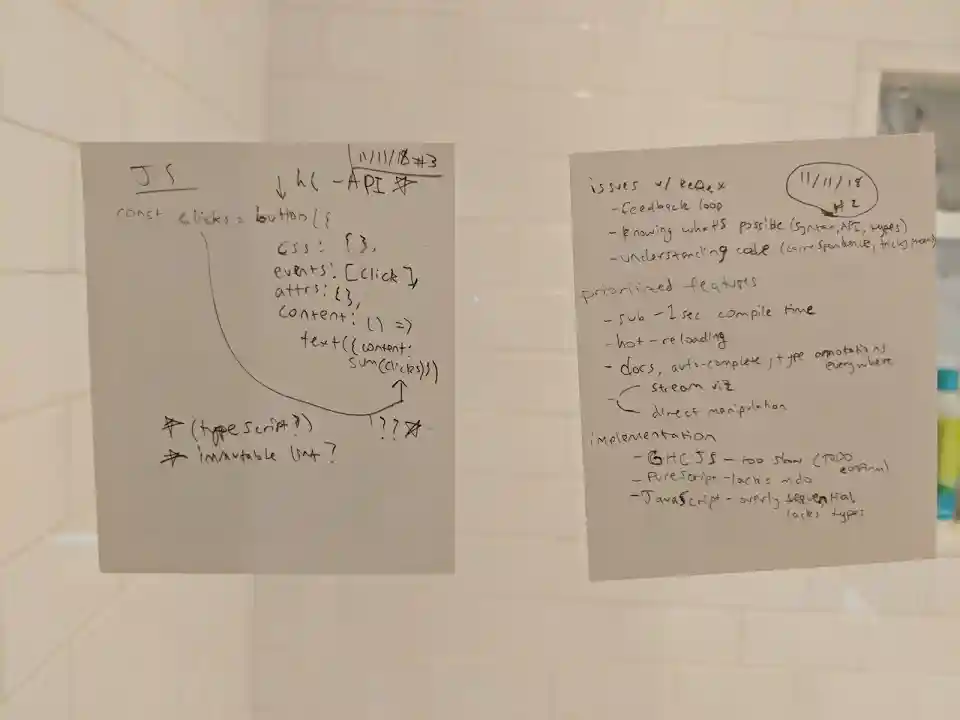 JS
11/11/18 #3
↓ h( -API *
const clicks = button({
css: {},
events: [click],
attrs: {},
content: () =>
text({content:
sum(clicks)})
???*
* (typescript?)
* immutable lint?
11/11/18
#2
issues w/ Reflex
- feedback loop
- knowing what's possible (syntax, API, types)
- understanding code (correspondence, tricky
prioritized features
- sub-1sec compile time
- hot-reloading
- docs, auto-complete, type annotations
everywhere
- stream viz
direct manipulation
implementation
- GHCJS - too slow (TODO
confirm)
- PureScript - lacks mdo
- JavaScript - overly sequential
lacks types